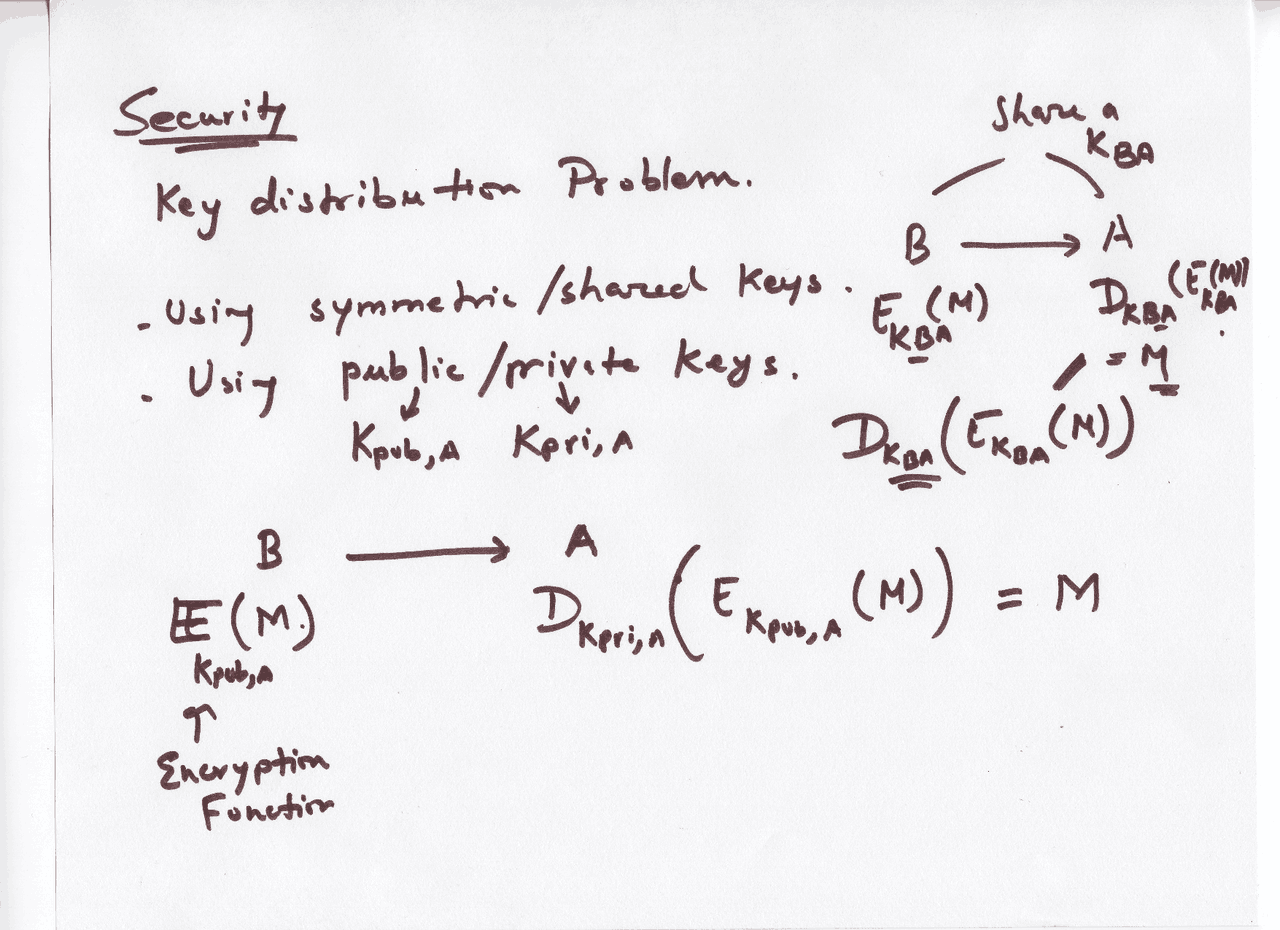 Security
Key distribution Problem.
. Using symmetric/shared Keys.
. Using public/private Keys.
Kpub,A Kpri,A
Share a
KBA
B → A
EKBA(M) DKBA(EKBA(M))
= M
DKBA(EKBA(M))
B → A
E(M.) DKpri,A(EKpub,A(M)) = M
Kpub,A
↑
Encryption
Function